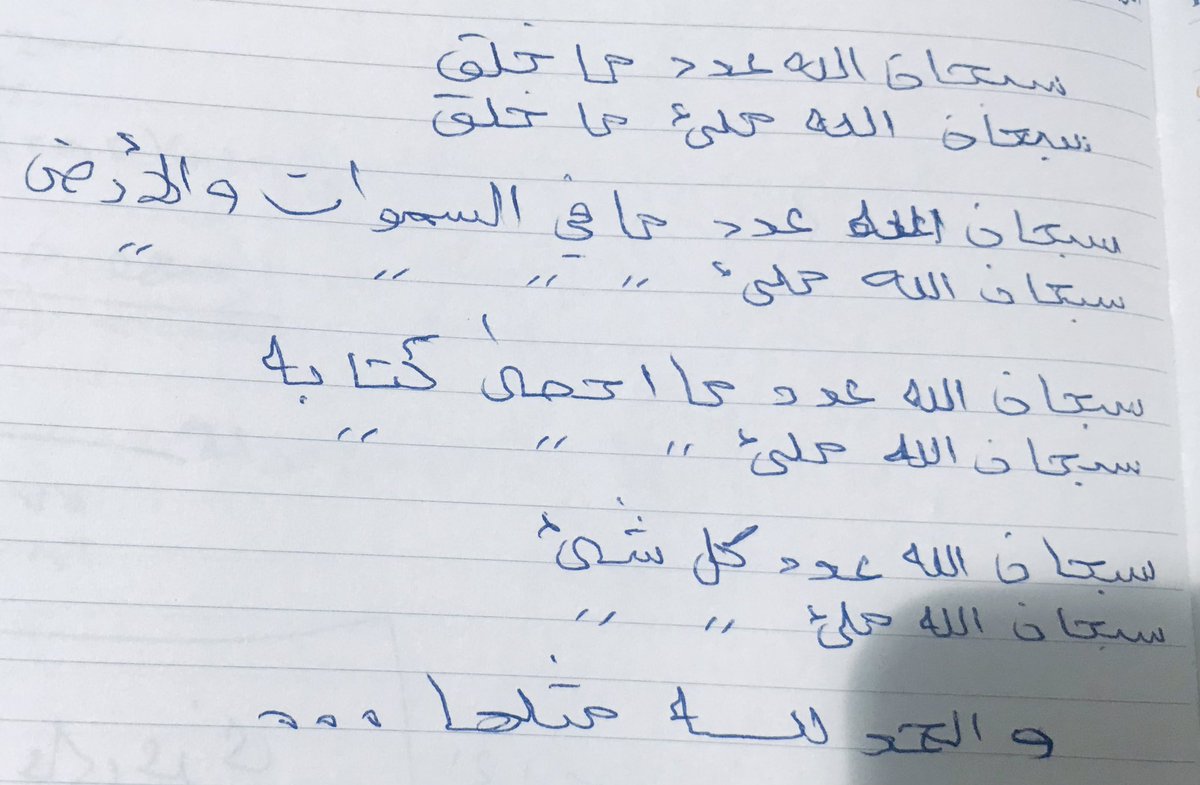 سبحان الله عدد ما خلق
سبحان الله ملئ ما خلق
سبحان الله عدد ما في السموات والأرض
سبحان الله ملئ " " " "
سبحان الله عدد ما احصى كتابه
سبحان الله ملئ " " "
سبحان الله عدد كل شئ
سبحان الله ملئ " "
والحمد لله مثلها ...